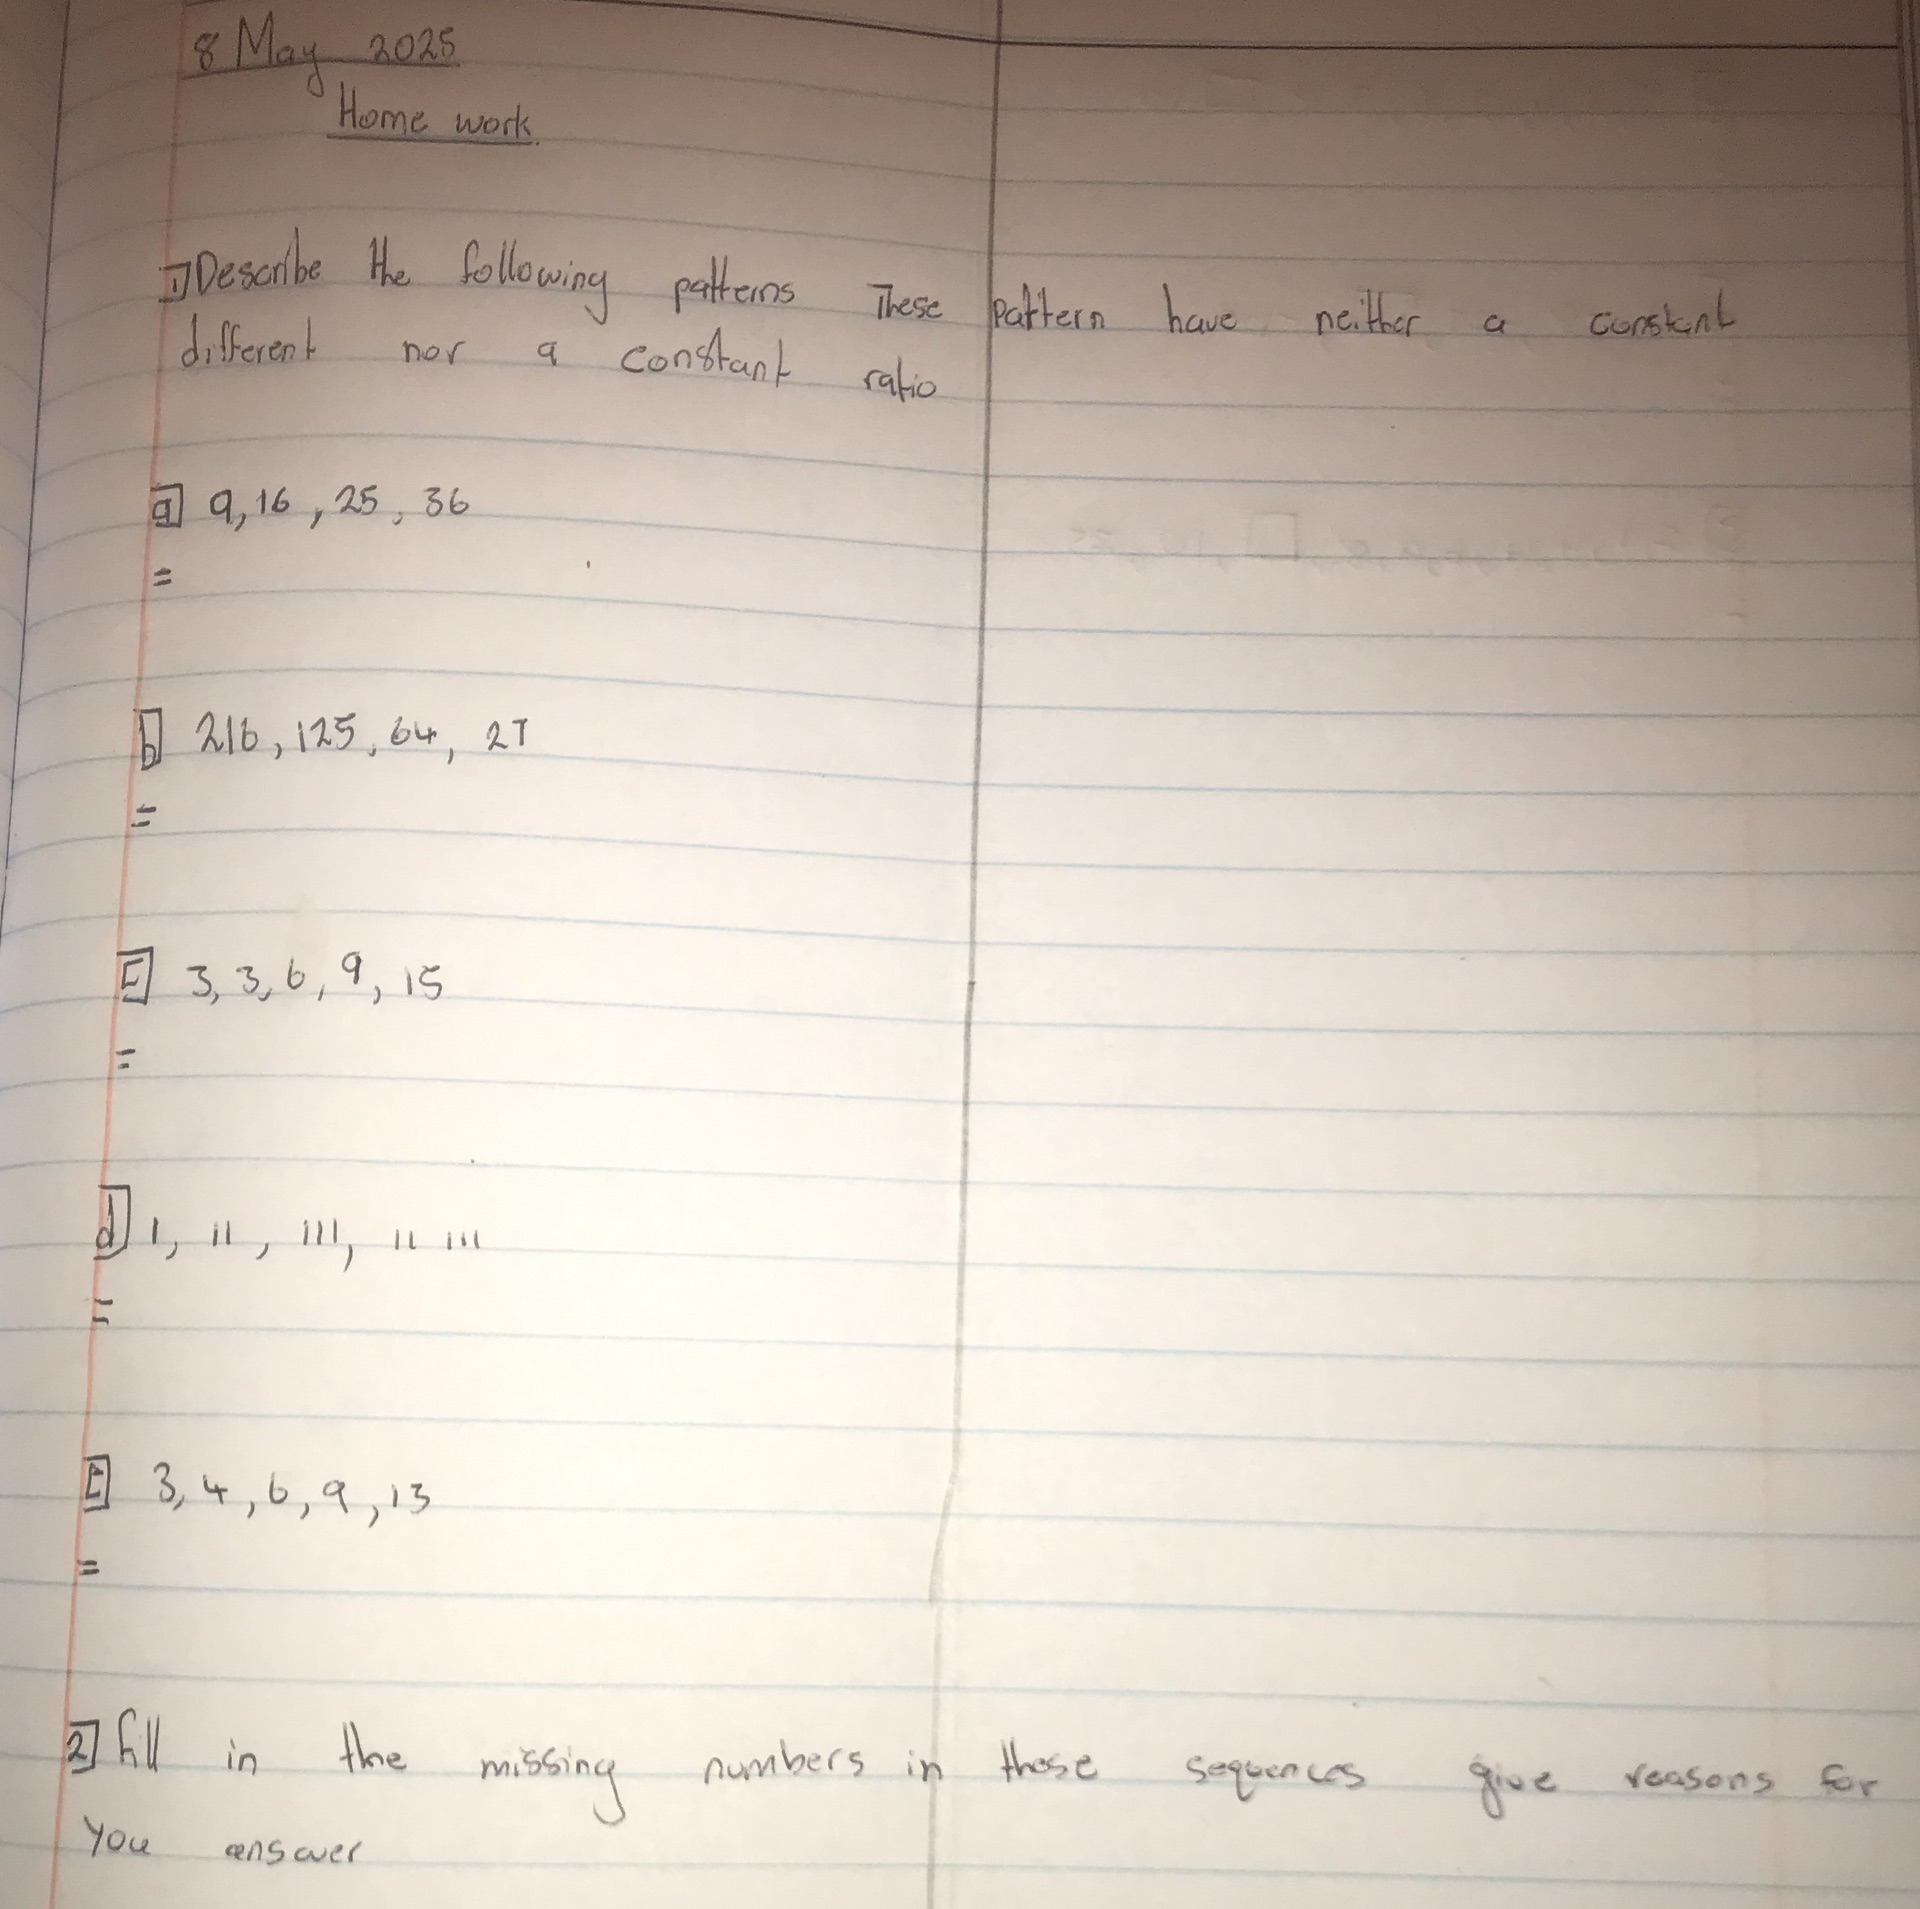 8 May 2025
Home work
1] Describe the following patterns These pattern have neither a constant
different nor a constant ratio
a] 9, 16, 25, 36
=
b] 216, 125, 64, 27
=
c] 3, 3, 6, 9, 15
=
d] 1, 11, 111, 11 111
=
e] 3, 4, 6, 9, 13
=
2] fill in the missing numbers in these sequences give reasons for
you answer